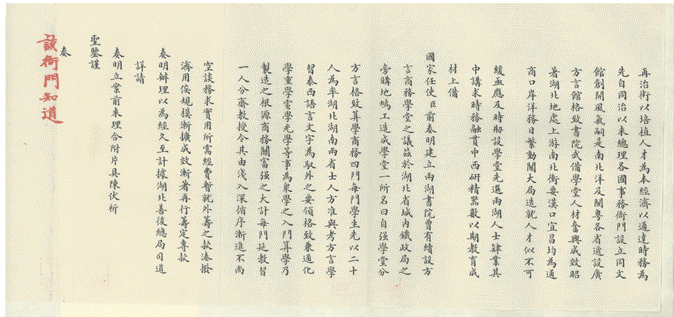 再治術以培植人才為本經濟以通達時務為
先自同治以來總理各國事務衙門設立同文
館創開風氣嗣是南北洋及閩粵各省遞設廣
方言館格致書院武備學堂人材奮興成效昭
著湖北地處上游南北衝要漢口宜昌均為通
商口岸洋務日繁動關大局造就人才似不可
緩亟應及時創設學堂先選兩湖人士肄業其
中講求時務融貫中西研精器數以期教育成
材上備
國家任使臣前奏明建立兩湖書院曾有續設方
言商務學堂之議茲於湖北省城內鐵政局之
旁購地鳩工造成學堂一所名曰自強學堂分
方言格致算學商務四門每門學生先以二十
人為率湖北湖南兩省士人方准與考方言學
習泰西語言文字為馭外之要領格致兼通化
學重學電學光學等事為眾學之入門算學乃
製造之根源商務關富強之大計每門延教習
一人分齋教授令其由淺入深循序漸進不尚
空談務求實用所需經費暫就外籌之款湊撥
濟用俟規模漸擴成效漸著再行籌定專款
奏明辦理以為經久至計據湖北善後總局司道
詳請
奏明立案前來理合附片具陳伏祈
聖鑒謹
奏
該衙門知道